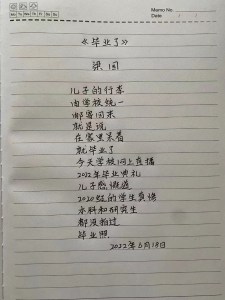 Memo No.
Mo Tu We Th Fr Sa Su
Date
《毕业了》
梁园
儿子的行李
由学校统一
邮寄回来
就是说
在家里呆着
就毕业了
今天学校网上直播
2022年毕业典礼
儿子感慨道
2020级的学生真惨
本科和研究生
都没拍过
毕业照
2022年6月18日